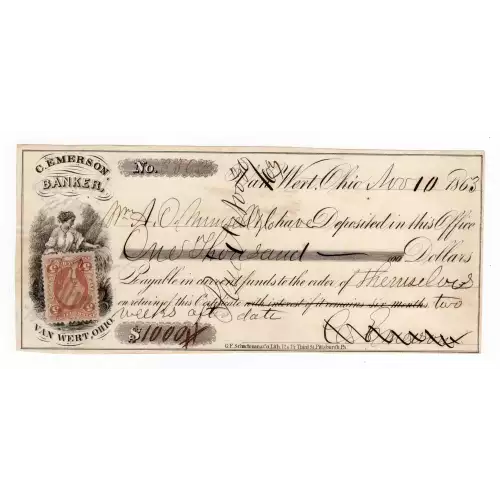 C. EMERSON,
BANKER,
VAN WERT, OHIO.
No.
Van Wert, Ohio Nov 10 1863
have Deposited in this Office
One Thousand — 100 Dollars
Payable in current funds to the order of Themselves
on return of this Certificate with interest if it remains six months two
weeks after date
$1000
C. Emerson
G.F. Schuchman & Co. Lith. Third St. Pittsburgh, Pa.